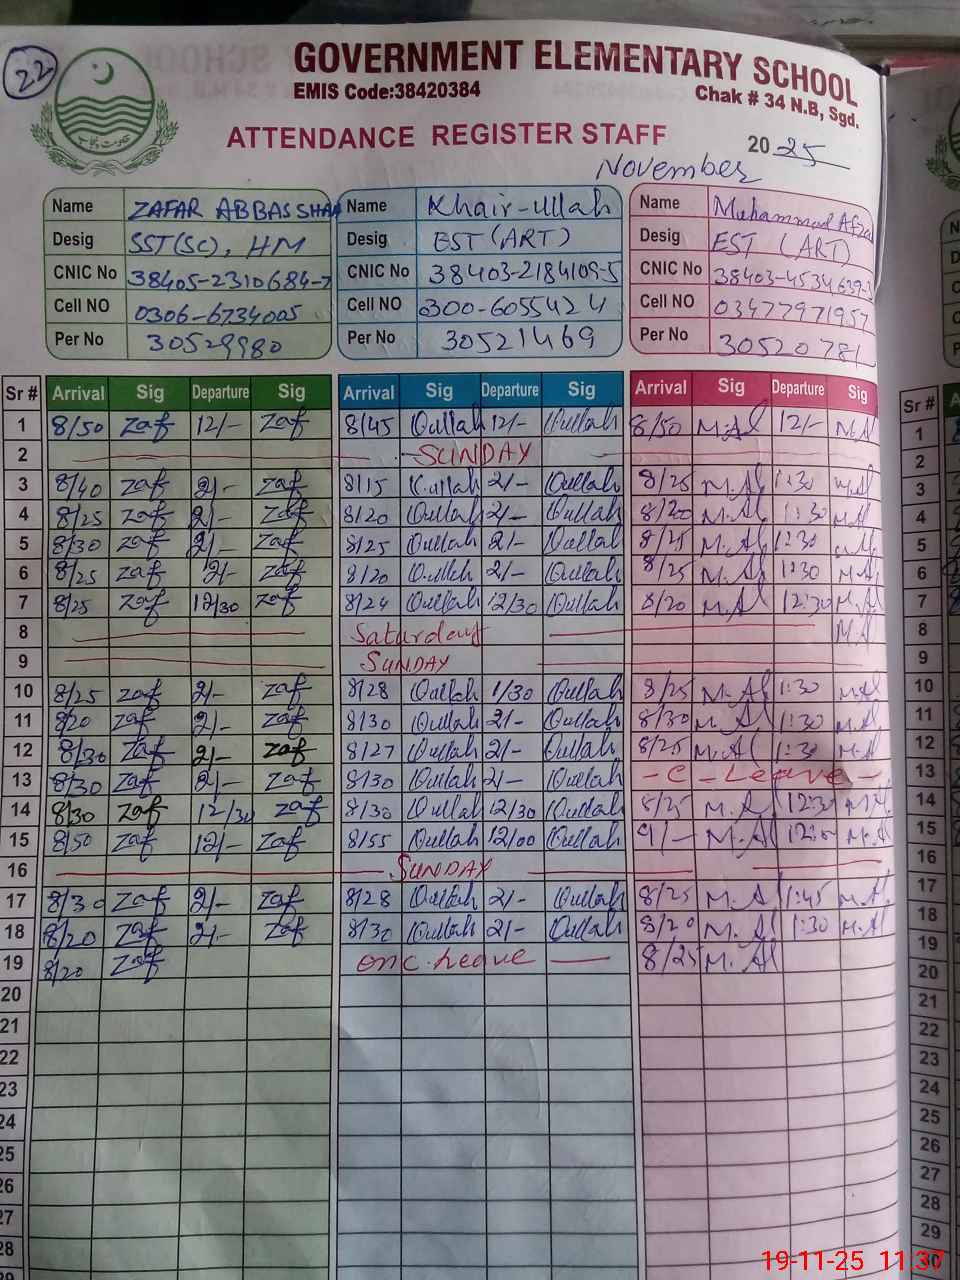 22
GOVERNMENT ELEMENTARY SCHOOL
EMIS Code:38420384 Chak # 34 N.B, Sgd.
ATTENDANCE REGISTER STAFF 2025
November
Name ZAFAR ABBAS SHAH Name Khair-ullah Name Muhammad Afzal
Desig SST(SC), HM Desig EST (ART) Desig EST (ART)
CNIC No 38405-2310684-7 CNIC No 38403-2184109-5 CNIC No 38403-4534639-3
Cell NO 0306-6734005 Cell NO 0300-6055424 Cell NO 03477971957
Per No 30529980 Per No 30521469 Per No 30520781
Sr # Arrival Sig Departure Sig Arrival Sig Departure Sig Arrival Sig Departure Sig Sr #
1 8/50 Zaf 12/- Zaf 8/45 Oullah 12/- Oullah 8/50 M.Al 12/- M.Al 1
2 SUNDAY 2
3 8/40 Zaf 2/- Zaf 8/15 Oullah 2/- Oullah 8/25 M.Al 1:30 M.Al 3
4 8/25 Zaf 2/- Zaf 8/20 Oullah 2/- Oullah 8/20 M.Al 1:30 M.Al 4
5 8/30 Zaf 2/- Zaf 8/25 Oullah 2/- Oullah 8/25 M.Al 1:30 M.Al 5
6 8/25 Zaf 2/- Zaf 8/20 Oullah 2/- Oullah 8/25 M.Al 1:30 M.Al 6
7 8/25 Zaf 12/30 Zaf 8/24 Oullah 12/30 Oullah 8/20 M.Al 12:30 M.Al 7
8 Saturday M.Al 8
9 SUNDAY 9
10 8/25 Zaf 2/- Zaf 8/28 Oullah 1/30 Oullah 8/25 M.Al 1:30 M.Al 10
11 8/20 Zaf 2/- Zaf 8/30 Oullah 2/- Oullah 8/30 M.Al 1:30 M.Al 11
12 8/30 Zaf 2/- Zaf 8/27 Oullah 2/- Oullah 8/25 M.Al 1:30 M.Al 12
13 8/30 Zaf 2/- Zaf 8/30 Oullah 2/- Oullah - C - Leave - 13
14 8/30 Zaf 12/30 Zaf 8/30 Oullah 12/30 Oullah 8/25 M.Al 12:30 M.Al 14
15 8/50 Zaf 12/- Zaf 8/55 Oullah 12/00 Oullah 9/- M.Al 12:0 M.Al 15
16 SUNDAY 16
17 8/30 Zaf 2/- Zaf 8/28 Oullah 2/- Oullah 8/25 M.Al 1:45 M.Al 17
18 8/20 Zaf 2/- Zaf 8/30 Oullah 2/- Oullah 8/20 M.Al 1:30 M.Al 18
19 8/20 Zaf one c.Leave 8/25 M.Al 19
20 20
21 21
22 22
23 23
24 24
25 25
26 26
27 27
28 28
29
30
19-11-25 11:37